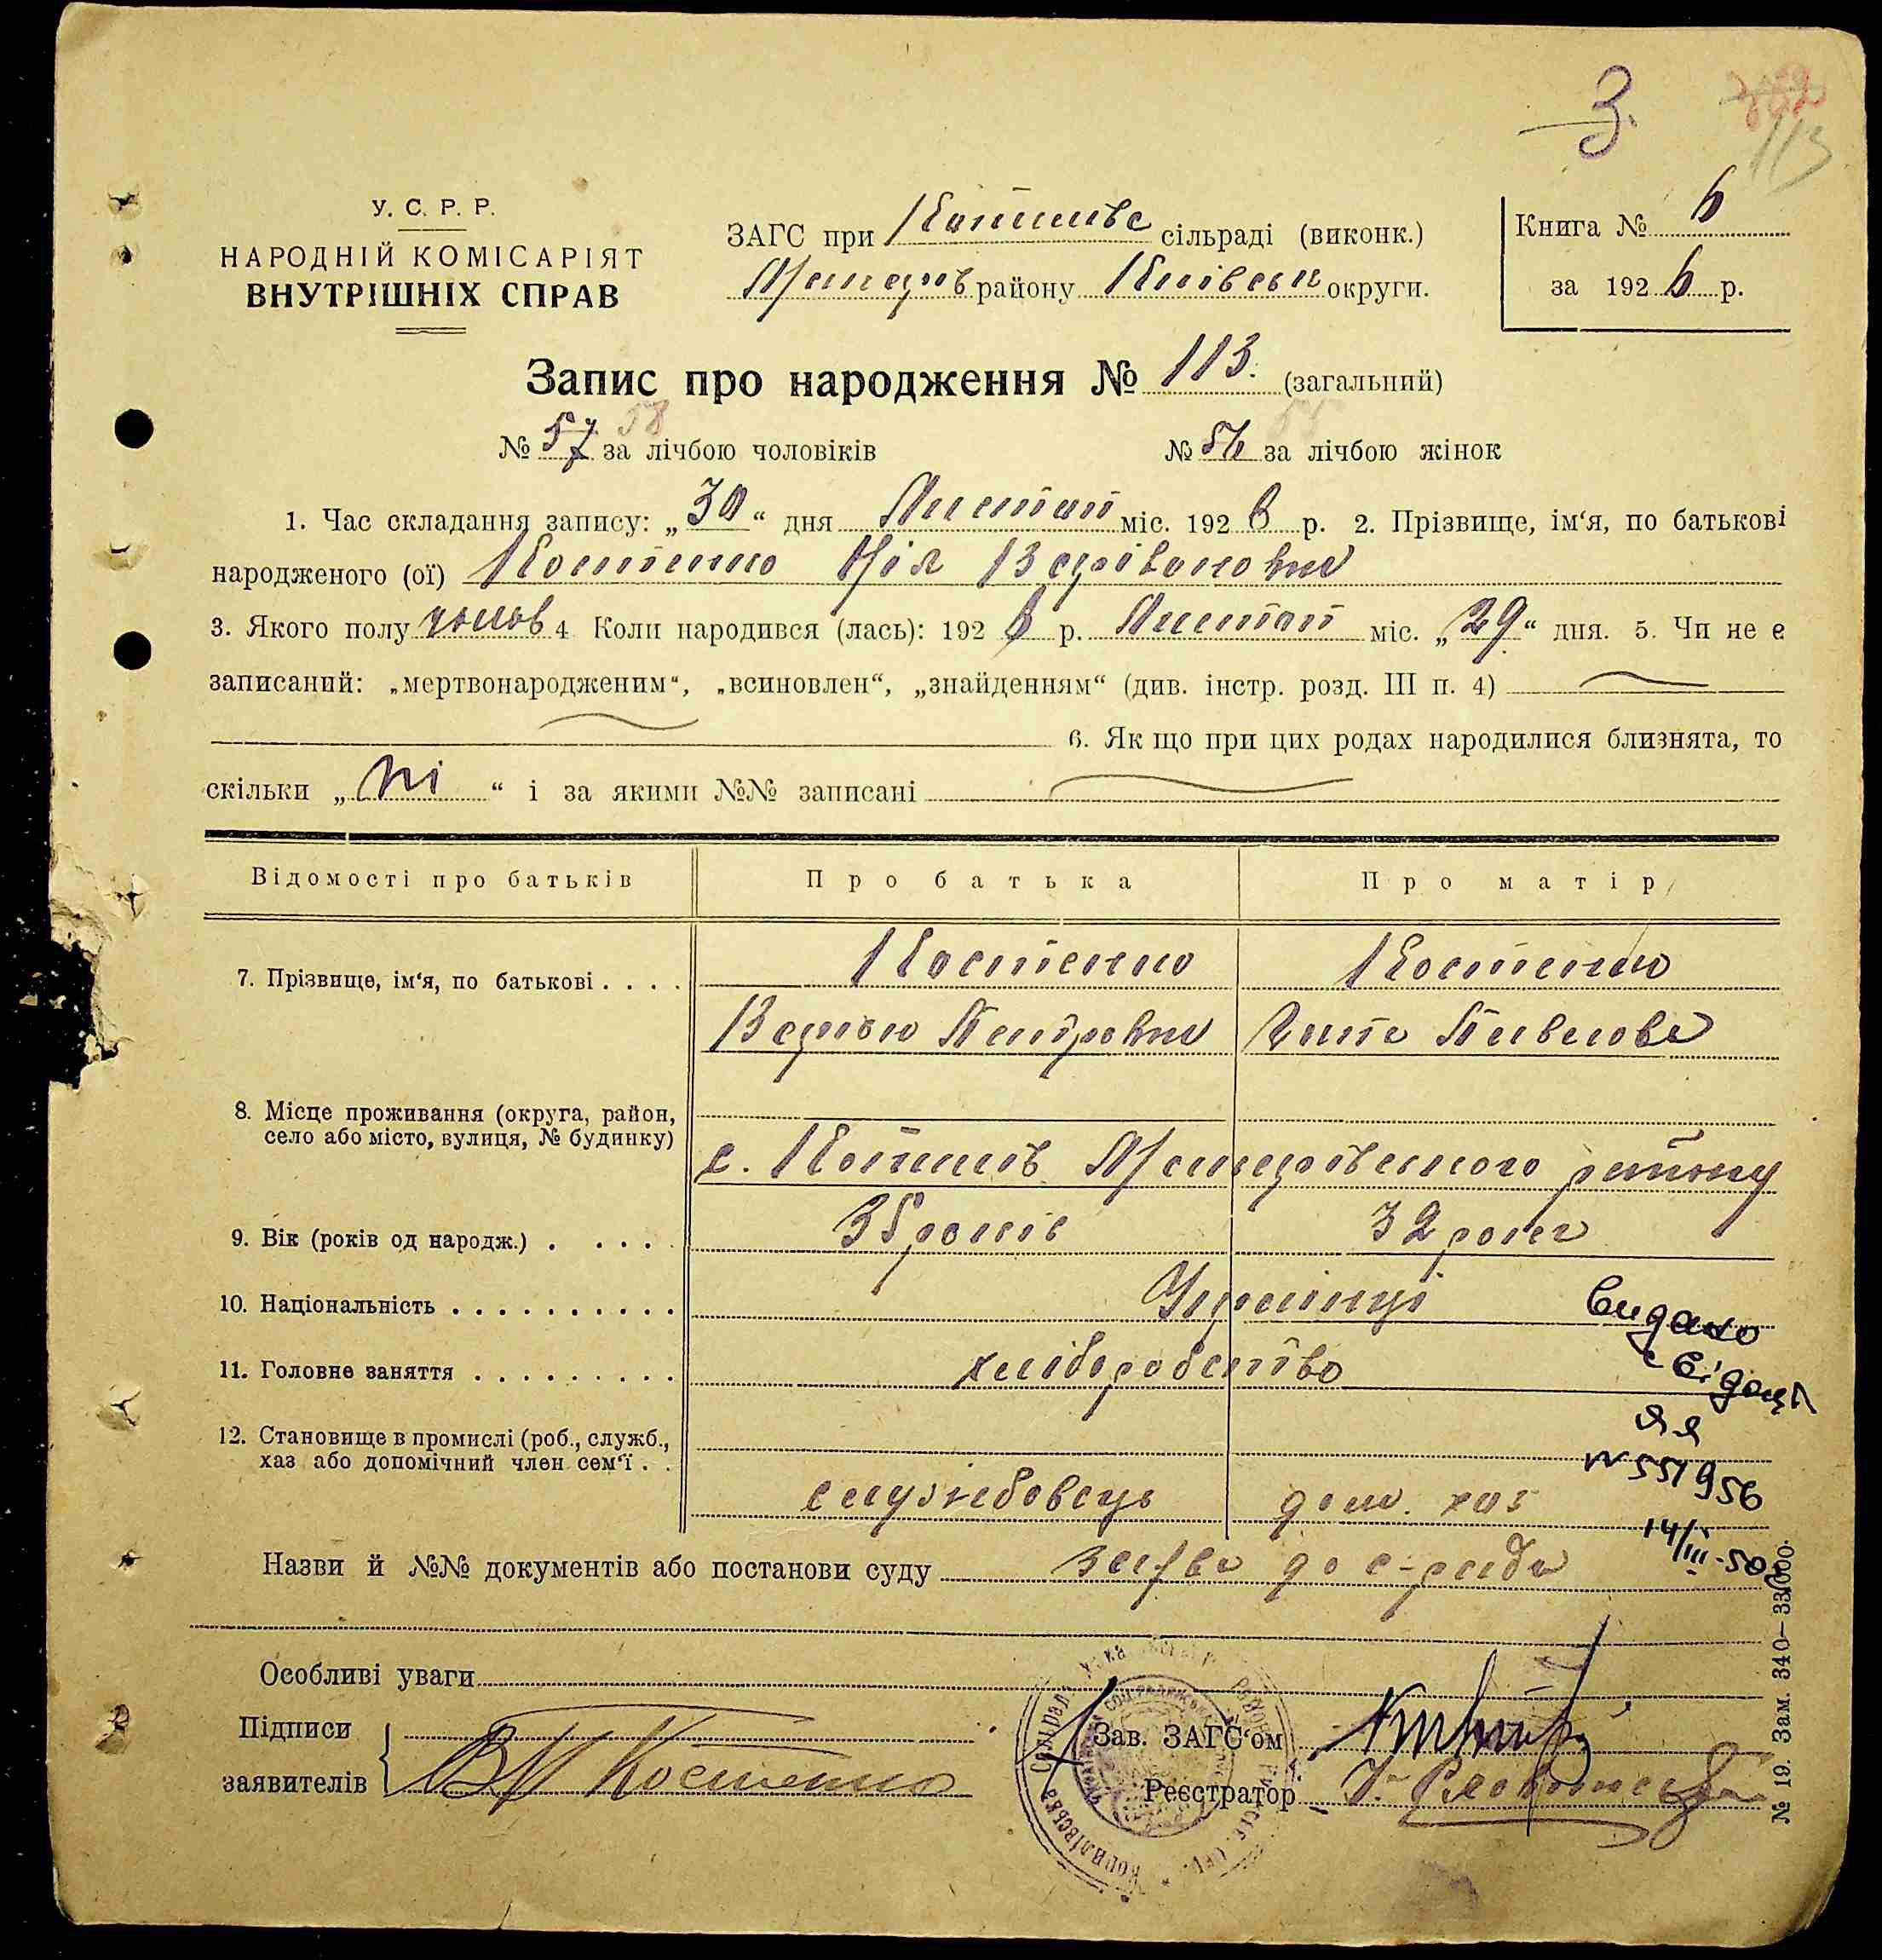 3.
113
У. С. Р. Р.
НАРОДНІЙ КОМІСАРІЯТ
ВНУТРІШНІХ СПРАВ
ЗАГС при сільраді (виконк.)
району Київськ округи.
Книга № 6
за 1926 р.
Запис про народження № 113. (загальний)
№ 57 58 за лічбою чоловіків № 56 55 за лічбою жінок
1. Час складання запису: „30“ дня Листоп міс. 1926 р. 2. Прізвище, ім‘я, по батькові
народженого (ої) Костенко
3. Якого полу чолов 4 Коли народився (лась): 1926 р. Листоп міс. „29“ дня. 5. Чи не є
записаний: „мертвонародженим“, „всиновлен“, „знайденням“ (див. інстр. розд. III п. 4)
6. Як що при цих родах народилися близнята, то
скільки „ні“ і за якими №№ записані
Відомості про батьків Про батька Про матір
7. Прізвище, ім‘я, по батькові . . . . Костенко Костенко
Петрович Павлова
8. Місце проживання (округа, район,
село або місто, вулиця, № будинку)
с. району
9. Вік (років од народж.) . . . . . 35 років 32 роки
10. Національність . . . . . . . . . . Українці
11. Головне заняття . . . . . . . . . хліборобство
12. Становище в промислі (роб., служб.,
хаз або допомічний член сем‘ї . .
службовець дом. хаз
видано
свідоцт
№ 551956
14/III-50
Назви й №№ документів або постанови суду заява до с-ради
Особливі уваги
Підписи
заявителів ВП Костенко
Зав. ЗАГС‘ом
Реєстратор
№ 19. Зам. 340—33.000.